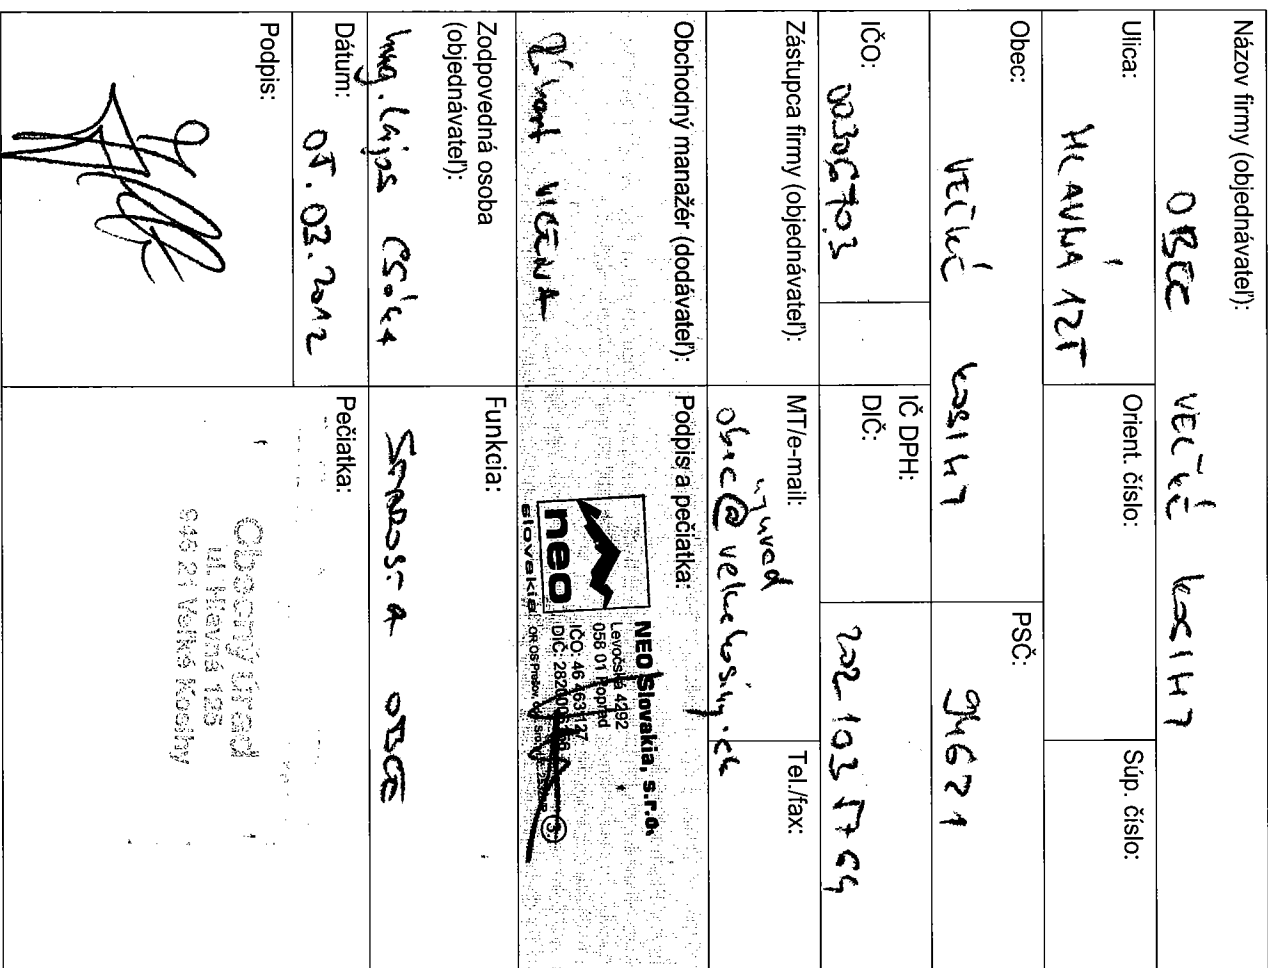 Názov firmy (objednávateľ):
OBEC VEĽKÉ KOSIHY
Ulica:
HLAVNÁ 125
Orient. číslo:
Súp. číslo:
Obec:
VEĽKÉ KOSIHY
PSČ:
94621
IČO:
00306703
IČ DPH:
DIČ:
2021035764
Zástupca firmy (objednávateľ):
MT/e-mail:
Tel./fax:
Obchodný manažér (dodávateľ):
VICENA
Podpis a pečiatka:
neo
slovakia
NEO Slovakia, s.r.o.
Levočská 4292
058 01 Poprad
IČO: 46 463 127
DIČ:
3.
Zodpovedná osoba
(objednávateľ):
Ing. Lajos CSÓKA
Funkcia:
STAROSTA OBCE
Dátum:
05.03.2012
Podpis:
Pečiatka:
Obecný úrad
ul. Hlavná 125
946 21 Veľké Kosihy